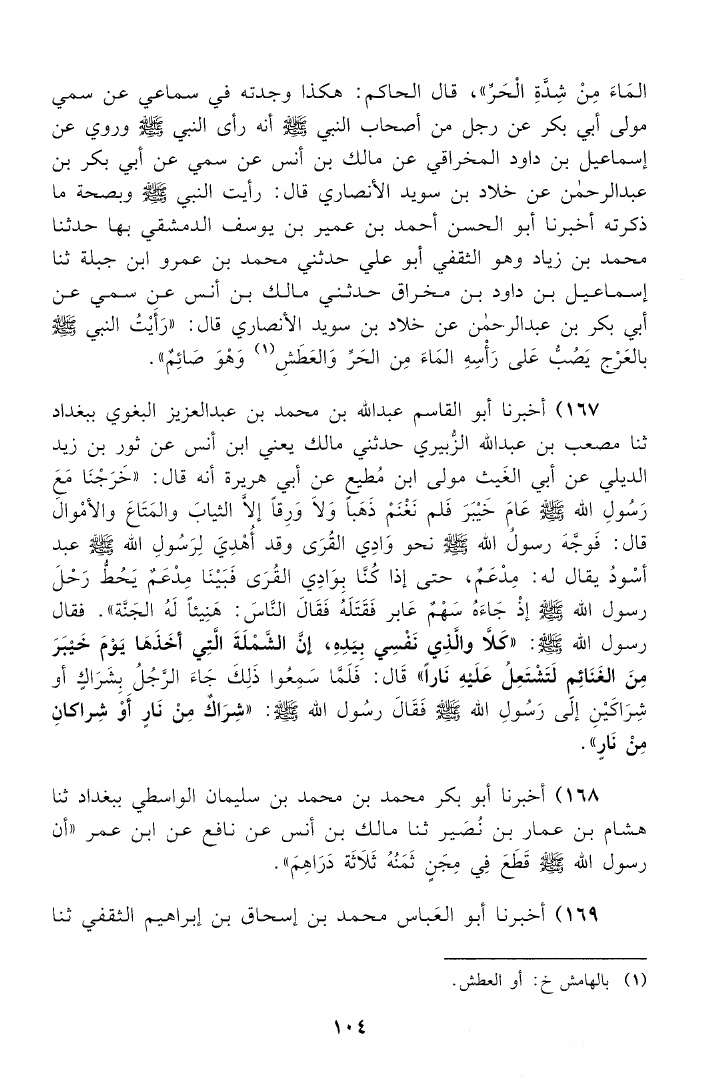 المَاءَ مِنْ شِدَّةِ الْحَرِّ»، قال الحاكم: هكذا وجدته في سماعي عن سمي
مولى أبي بكر عن رجل من أصحاب النبي ﷺ أنه رأى النبي ﷺ وروي عن
إسماعيل بن داود المخراقي عن مالك بن أنس عن سمي عن أبي بكر بن
عبدالرحمٰن عن خلاد بن سويد الأنصاري قال: رأيت النبي ﷺ وبصحة ما
ذكرته أخبرنا أبو الحسن أحمد بن عمير بن يوسف الدمشقي بها حدثنا
محمد بن زياد وهو الثقفي أبو علي حدثني محمد بن عمرو ابن جبلة ثنا
إسماعيل بن داود بن مخراق حدثني مالك بن أنس عن سمي عن
أبي بكر بن عبدالرحمٰن عن خلاد بن سويد الأنصاري قال: «رَأَيْتُ النبي ﷺ
بالعَرْجِ يَصُبُّ عَلى رَأْسِهِ المَاءَ مِن الحَرِّ وَالعَطَشِ(١) وَهْوَ صَائِمٌ».
١٦٧) أخبرنا أبو القاسم عبدالله بن محمد بن عبدالعزيز البغوي ببغداد
ثنا مصعب بن عبدالله الزُّبيري حدثني مالك يعني ابن أنس عن ثور بن زيد
الديلي عن أبي الغَيث مولى ابن مُطيع عن أبي هريرة أنه قال: «خَرَجْنَا مَعَ
رَسُولِ الله ﷺ عَامَ خَيْبَرَ فَلم نَغْنَمْ ذَهَباً وَلاَ وَرِقاً إلاَّ الثيابَ والمَتَاعَ والأمْوالَ
قال: فَوجَّهَ رسولُ الله ﷺ نحو وَادِي القُرَى وقد أُهْدِيَ لِرَسُولِ الله ﷺ عبد
أسْودُ يقال له: مِدْعَمٌ، حتى إذا كُنَّا بِوَادِي القُرَى فَبَيْنَا مِدْعَمٌ يَحُطُّ رَحْلَ
رسول الله ﷺ إذْ جَاءَهُ سَهْمٌ عابر فَقَتَلَهُ فَقَالَ النَّاسَ: هَنِيئاً لَهُ الجَنَّة». فقال
رسول الله ﷺ: «كَلَّا والَّذِي نَفْسِي بِيَدِهِ، إنَّ الشَّمْلَةَ الَّتِي أخَذَهَا يَوْمَ خَيْبَرَ
مِنَ الغَنَائِم لَتَشْتَعِلُ عَلَيْهِ نَاراً» قَال: فَلَمَّا سَمِعُوا ذَلِكَ جَاءَ الرَّجُلُ بِشَرَاكٍ أو
شِرَاكَيْنِ إلَى رَسُولِ الله ﷺ فَقَالَ رسُول الله ﷺ: «شِرَاكٌ مِنْ نَارٍ أَوْ شِراكانِ
مِنْ نَارٍ».
١٦٨) أخبرنا أبو بكر محمد بن محمد بن سليمان الواسطي ببغداد ثنا
هشام بن عمار بن نُصَير ثنا مالك بن أنس عن نافع عن ابن عمر «أن
رسول الله ﷺ قَطَعَ فِي مِجَنٍ ثَمَنُهُ ثَلَاثَة دَرَاهِمَ».
١٦٩) أخبرنا أبو العَباس محمد بن إسحاق بن إبراهيم الثقفي ثنا
(١) بالهامش خ: أو العطش.
١٠٤